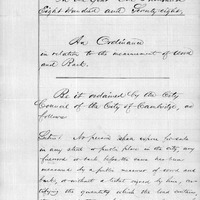 In the Year One Thousand
Eight Hundred and Seventy eight.
An Ordinance
in relation to the measurement of wood
and Bark.
Be it ordained by the City
Council of the City of Cambridge, as
follows
Sect. 1. No person shall offer for sale
in any street or public place in the city, any
firewood or bark before the same has been
measured by a public measurer of wood and
bark, without a ticket signed by him, cer-
tifying the quantity which the load contains